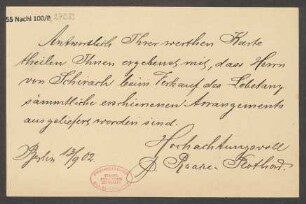 55 Nachl 100/B
Antwortlich Ihrer werthen Karte
theilen Ihnen ergebenst mit, dass Herrn
von Schirach beim Verkauf des Lobetanz
sämmtliche erschienenen Arrangements
ausgeliefert worden sind.
Hochachtungsvoll
Berlin 13/9 02
Raabe & Plothow